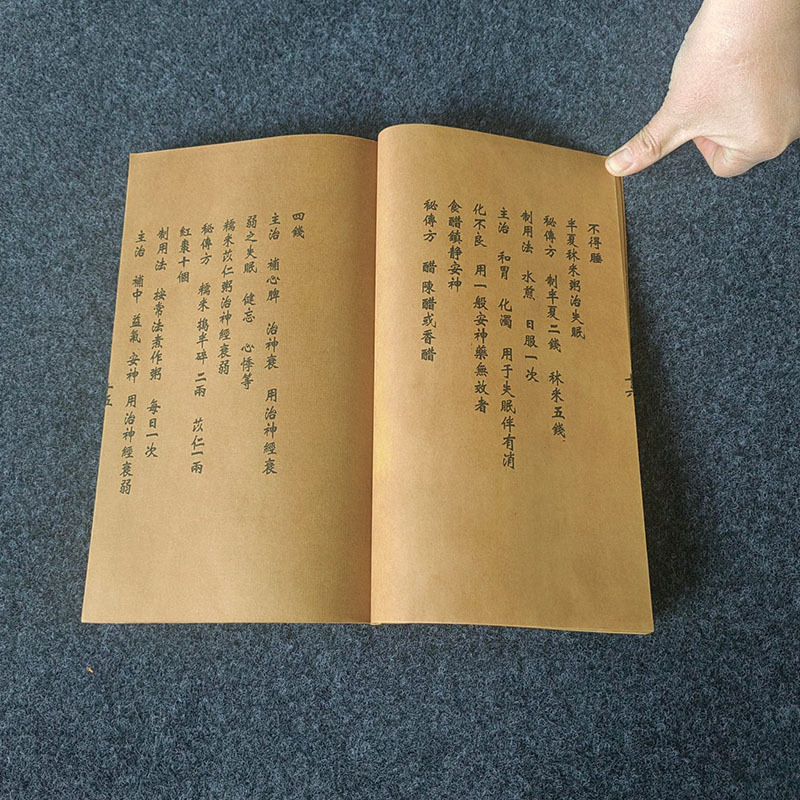 不得睡
半夏秫米粥治失眠
秘傳方 制半夏二錢 秫米五錢
制用法 水煎 日服一次
主治 和胃 化濁 用于失眠伴有消
化不良 用一般安神藥無效者
食醋鎮静安神
秘傳方 醋 陳醋或香醋
四錢
主治 補心脾 治神衰 用治神經衰
弱之失眠 健忘 心悸等
糯米苡仁粥治神經衰弱
秘傳方 糯米 搗半碎 二兩 苡仁一兩
紅棗十個
制用法 按常法煮作粥 每日一次
主治 補中 益氣 安神 用治神經衰弱